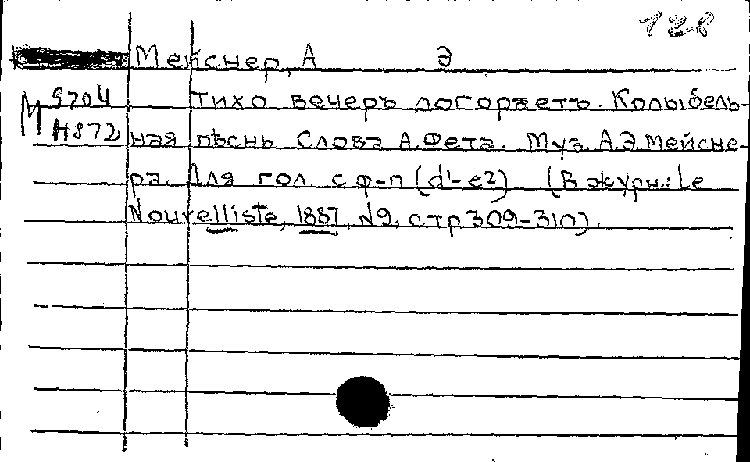 128
Мейснер, А Э
М 9704 Тихо вечеръ догораетъ. Колыбель-
Н872 ная пѣснь Слова А.Фета. Муз. А.Э Мейсне-
ра. Для гол с ф-п (d¹-e²) (В журн.: Le
Nouvelliste, 1887, №9, стр 309-310).